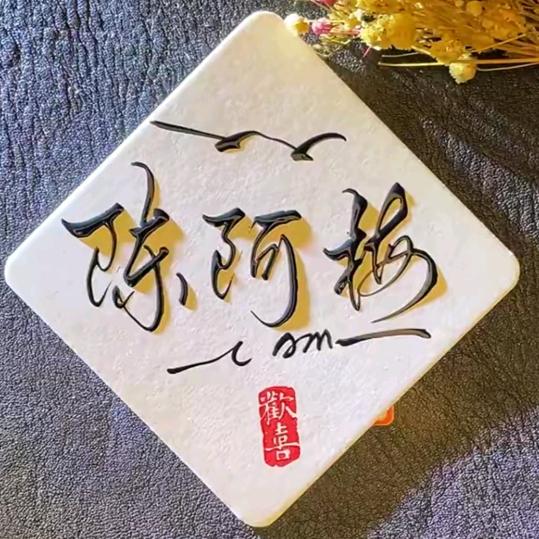 陈阿梅
cAm
歡喜